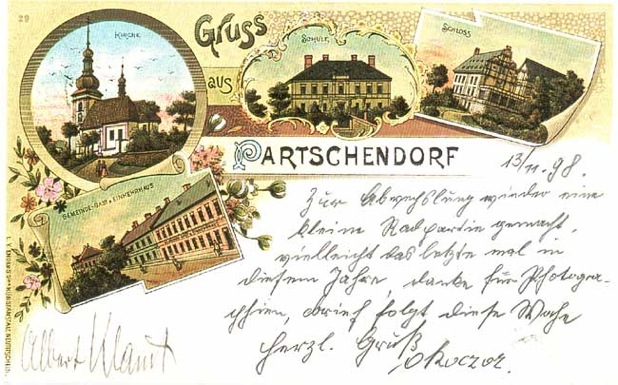 29
KIRCHE
Gruss
aus
SCHULE
SCHLOSS
PARTSCHENDORF
GEMEINDE-GAST & EINKEHRHAUS
13/11. 98.
Zur Abwechslung wieder eine
kleine Radpartie gemacht,
vielleicht das letzte mal in
diesem Jahre, danke für Photogra-
phien, brief folgt diese Woche
herzl. Gruß
Albert